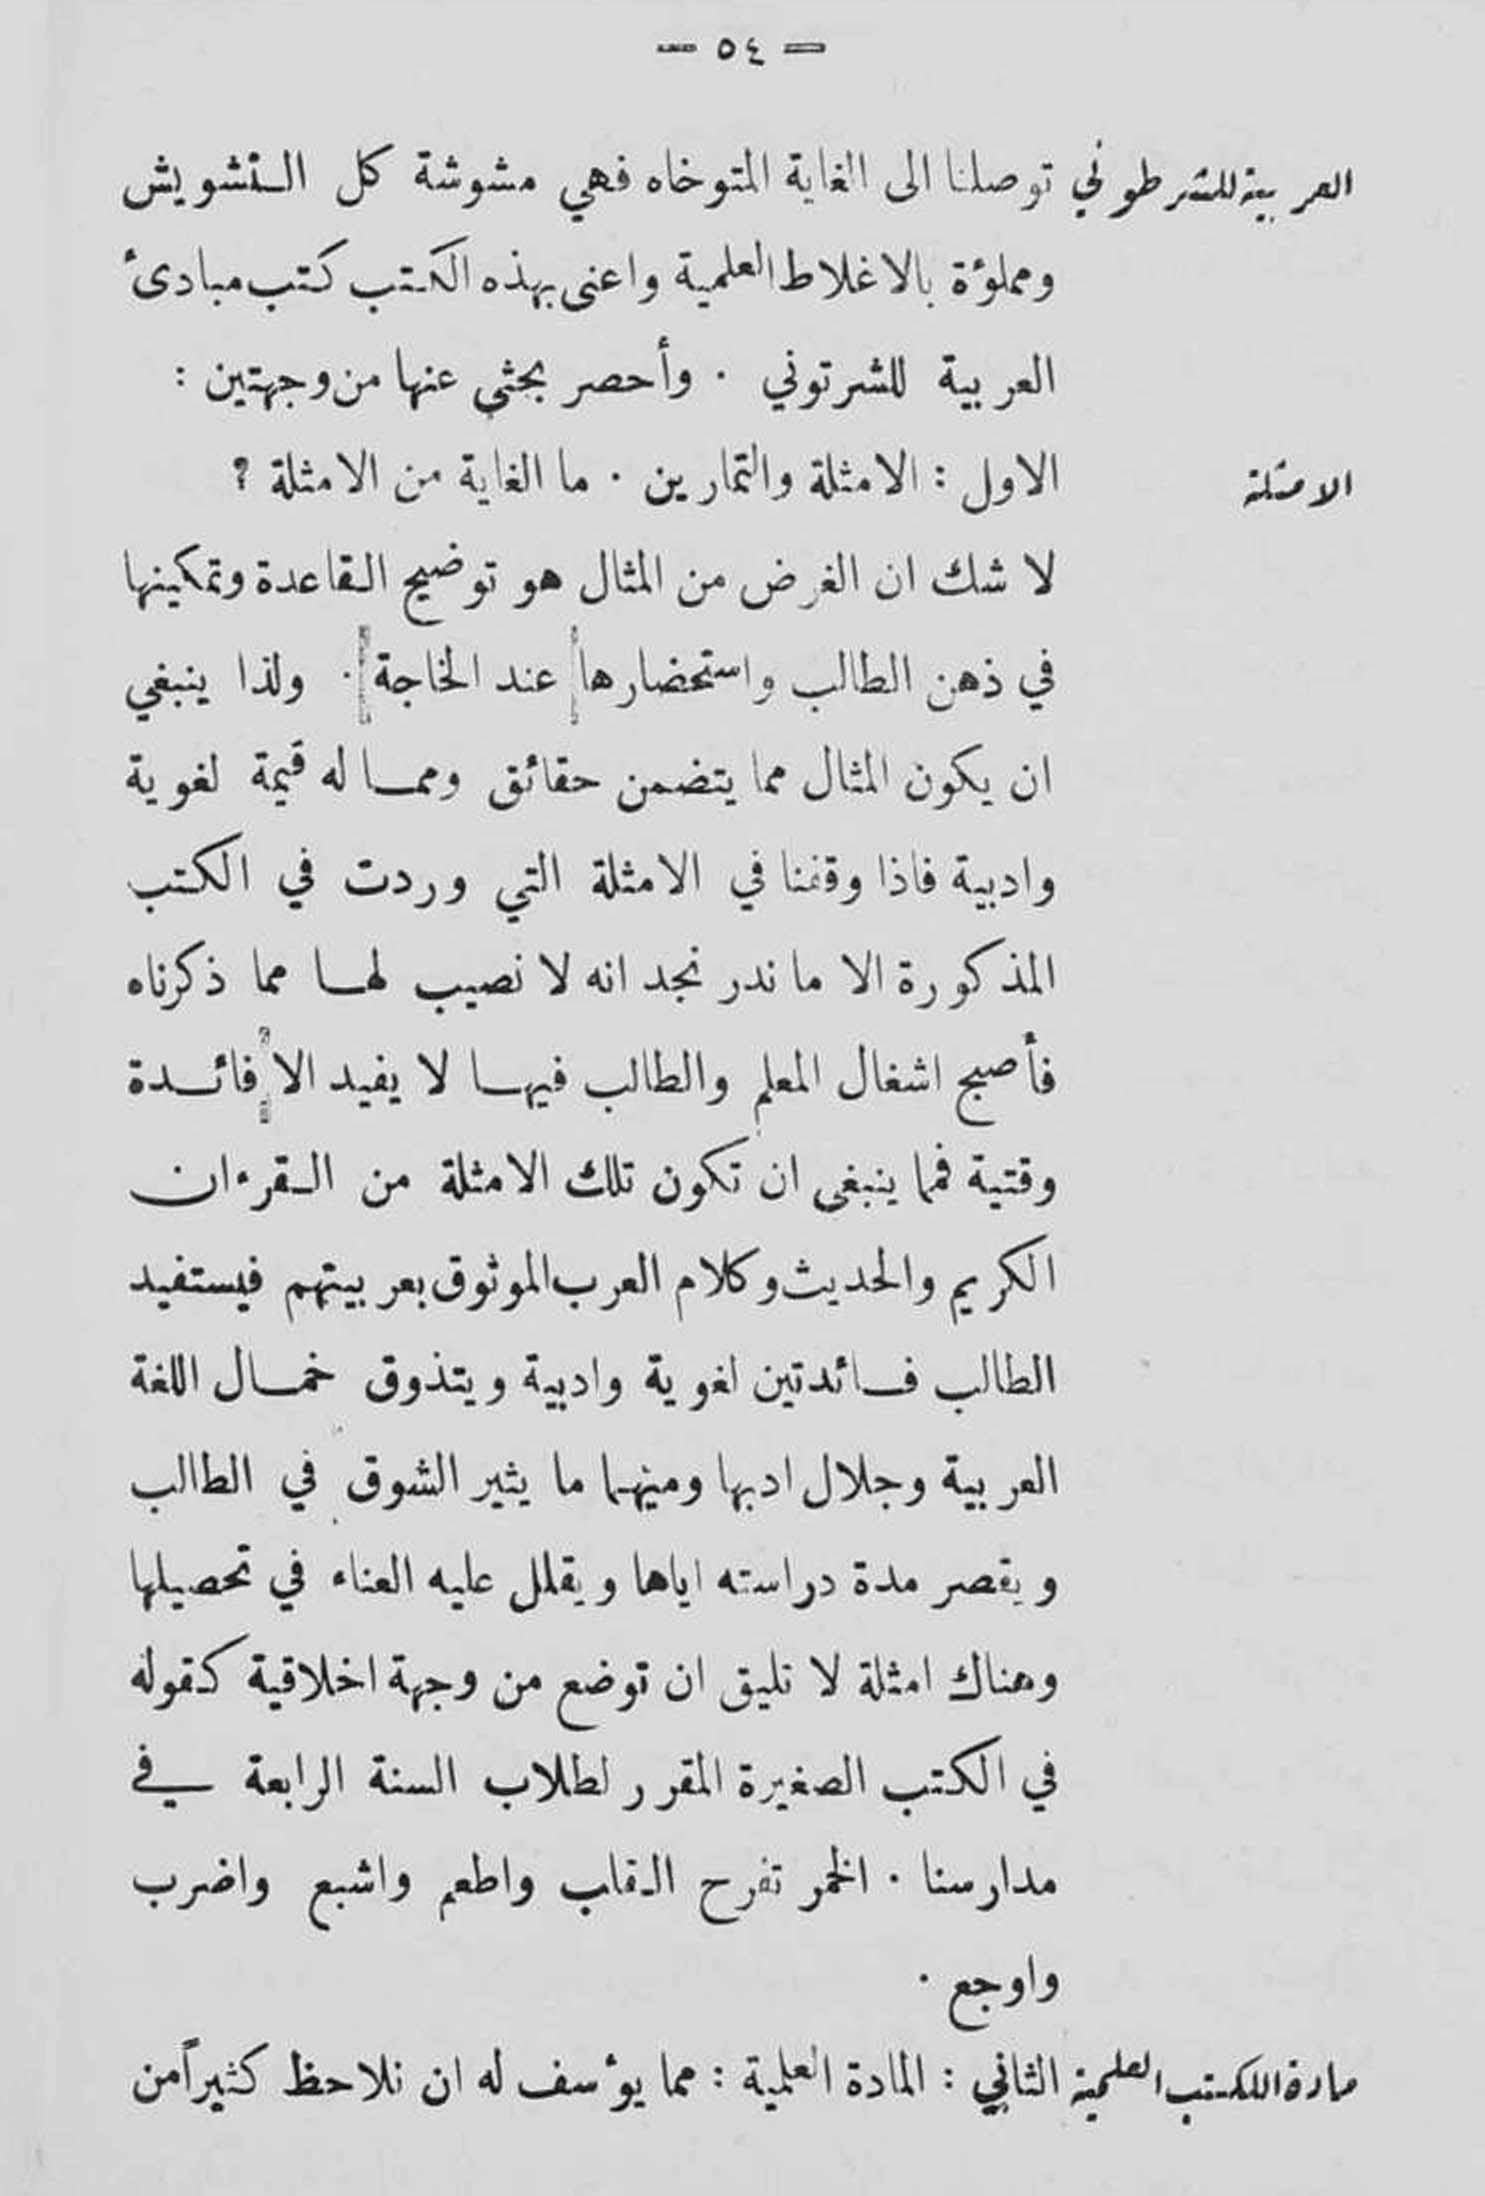 — ٥٤ —
العربية للشرطوني توصلنا الى الغاية المتوخاه فهي مشوشة كل التشويش
ومملؤة بالاغلاط العلمية واعنى بهذه الكتب كتب مبادىء
العربية للشرتوني . وأحصر بحثي عنها من وجهتين :
الامثلة
الاول : الامثلة والتمارين . ما الغاية من الامثلة ؟
لا شك ان الغرض من المثال هو توضيح القاعدة وتمكينها
في ذهن الطالب واستحضارها عند الخاجة . ولذا ينبغي
ان يكون المثال مما يتضمن حقائق ومما له قيمة لغوية
وادبية فاذا وقفنا في الامثلة التي وردت في الكتب
المذكورة الا ما ندر نجد انه لا نصيب لها مما ذكرناه
فأصبح اشغال المعلم والطالب فيها لا يفيد الا فائدة
وقتية فمما ينبغى ان تكون تلك الامثلة من القرءان
الكريم والحديث وكلام العرب الموثوق بعربيتهم فيستفيد
الطالب فائدتين لغوية وادبية ويتذوق خمال اللغة
العربية وجلال ادبها ومنهما ما يثير الشوق في الطالب
ويقصر مدة دراسته اياها ويقلل عليه العناء في تحصيلها
وهناك امثلة لا تليق ان توضع من وجهة اخلاقية كقوله
في الكتب الصغيرة المقرر لطلاب السنة الرابعة في
مدارسنا . الخمر تفرح القلب واطعم واشبع واضرب
واوجع .
مادة اللكتب العلمية
الثاني : المادة العلمية : مما يؤسف له ان نلاحظ كثيراً من